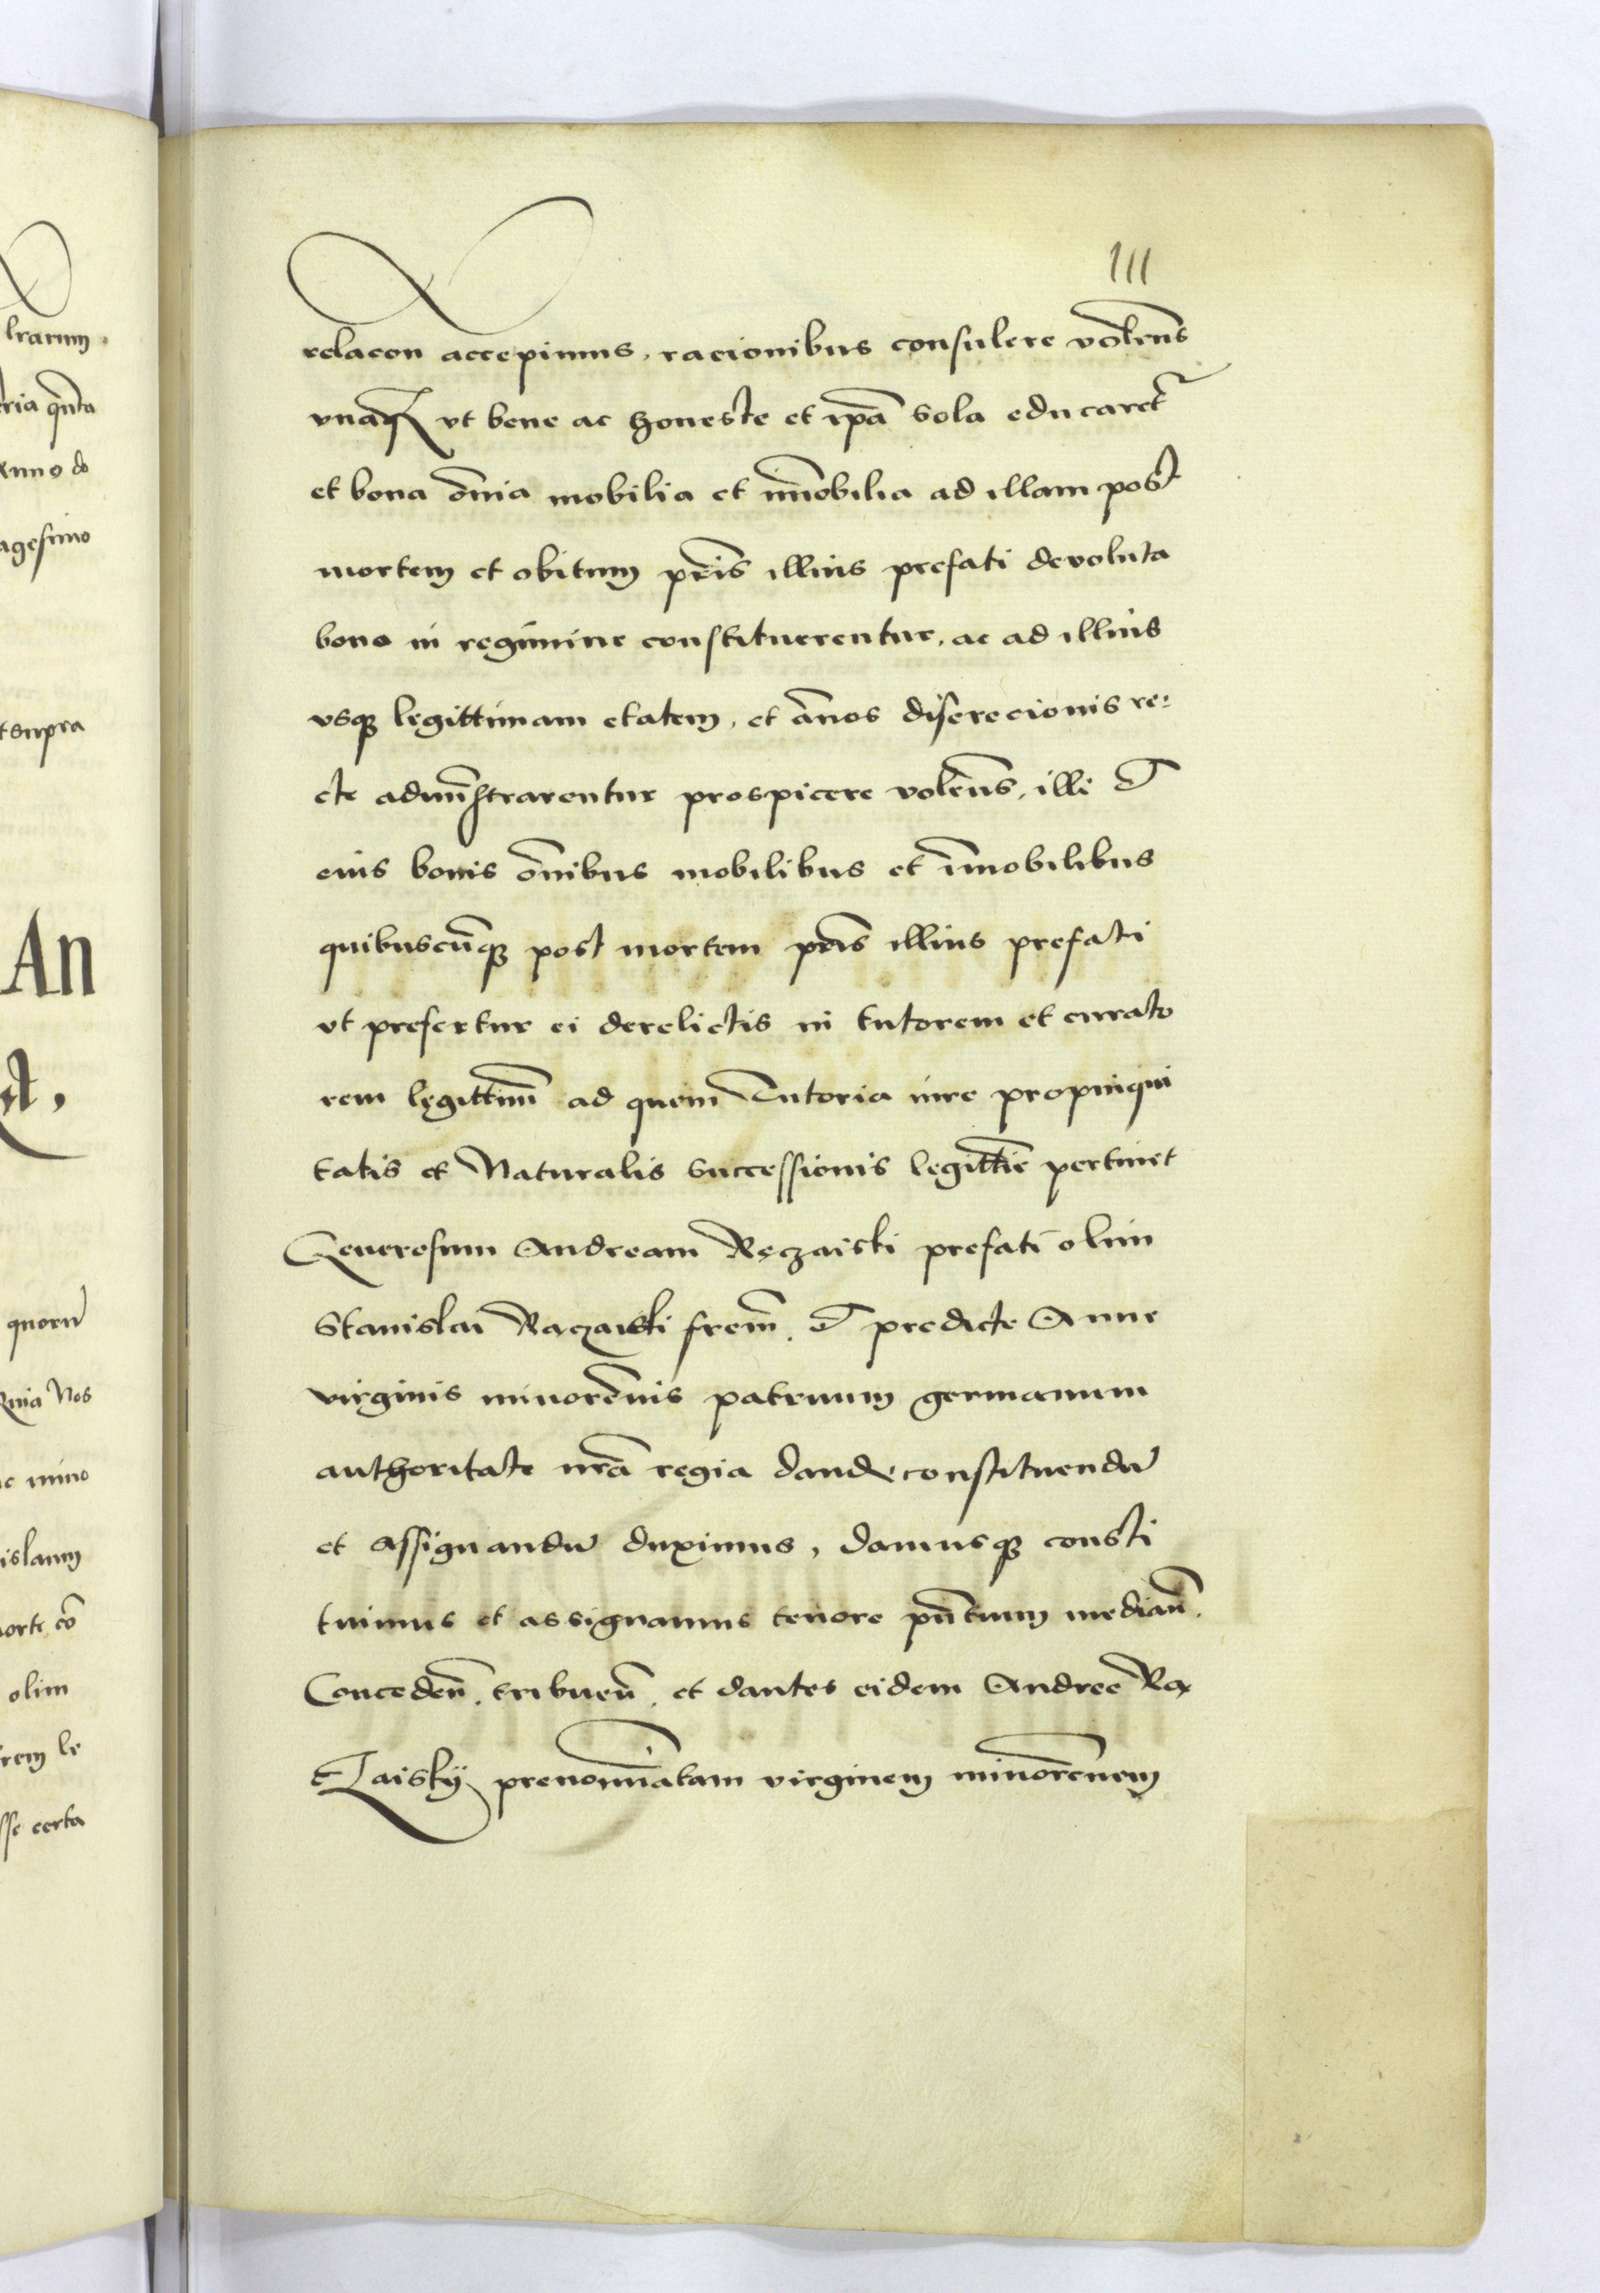 111
relacon accepimus, racionibus consulere volen̄s
vnaq̨ vt bene ac honeste et ip̄a sola educaret̄
et bona ōnia mobilia et im̄obilia ad illam post
mortem et obitum pr̄is illius prefati devoluta
bono in regimine constituerentur, ac ad illius
vsq̨ legittimam etatem, et an̄os discrecionis re:
cte admin̄strarentur prospicere volen̄s, illi et
eius bonis ōnibus mobilibus et im̄obilibus
quibuscūq̨ post mortem pr̄is illius prefati
vt prefertur ei derelictis in tutorem et curato
rem legittim̄ ad quem Tutoria iure propinqui
tatis et Naturalis successionis legitti̅e pertinet
Generosum Andream Ręczaiski prefati olim
Stanislai Raczaiski frem̄. et predicte Anne
virginis minoren̄is patruum germanum
authoritate nr̄a regia dand. constituendū
et assignandū duximus, damusq̨ consti
tuimus et assignamus tenore pn̄tium median̄.
Conceden̄. tribuen̄. et dantes eidem Andree Ra
czaisky prenomi̅atam virginem minoren̄em
lrarum.
qn̄ta
Anno do
agesimo
supra
An
quorū
Quia Nos
mino
islaum
cō
olim
le
certa